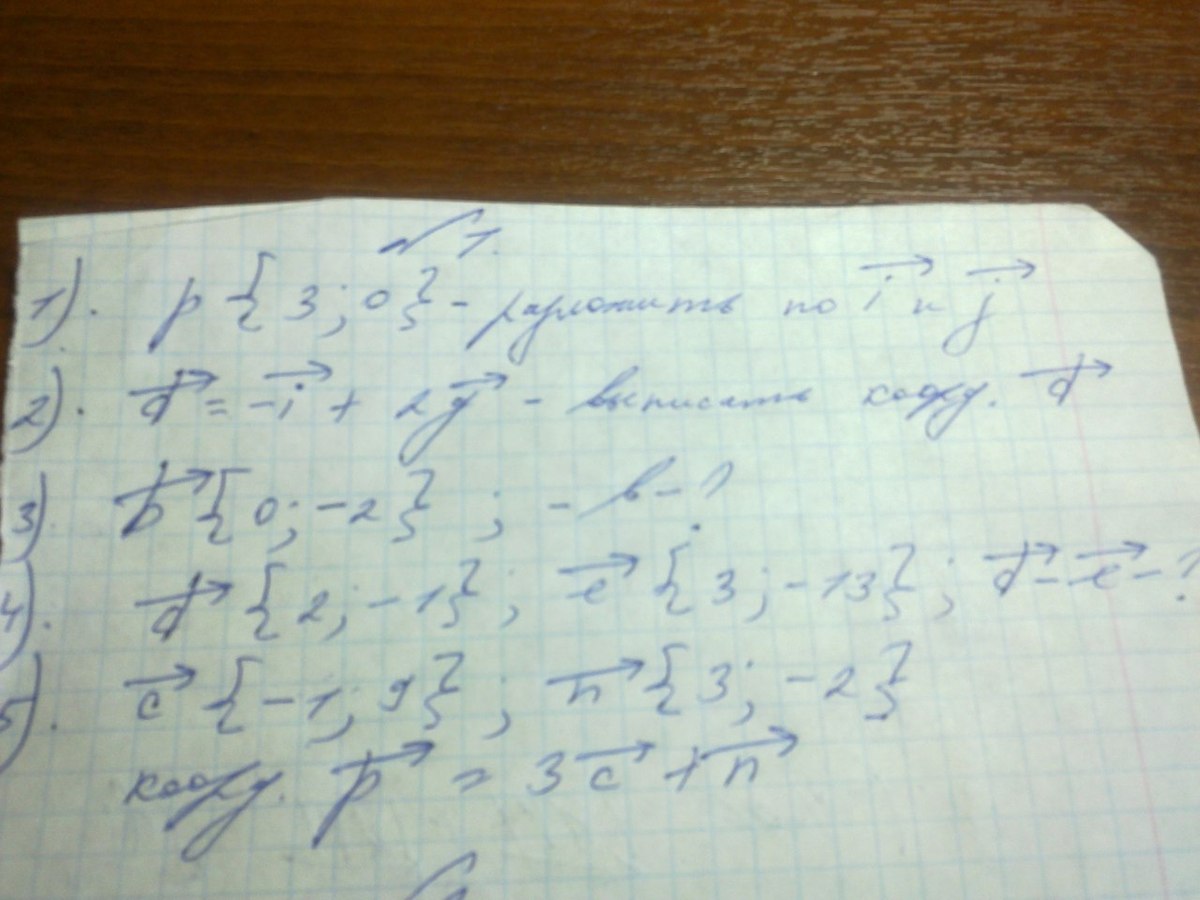 √1.
1). p {3; 0} - разложить по i⃗ и j⃗
2). d⃗ = -i⃗ + 2j⃗ - выписать коорд. d⃗
3). b⃗ {0; -2} ; - b - ?
4). d⃗ {2; -1}; e⃗ {3; -13}; d⃗ - e⃗ - ?
5). c⃗ {-1; 9} ; n⃗ {3; -2}
коорд. p⃗ = 3c⃗ + n⃗